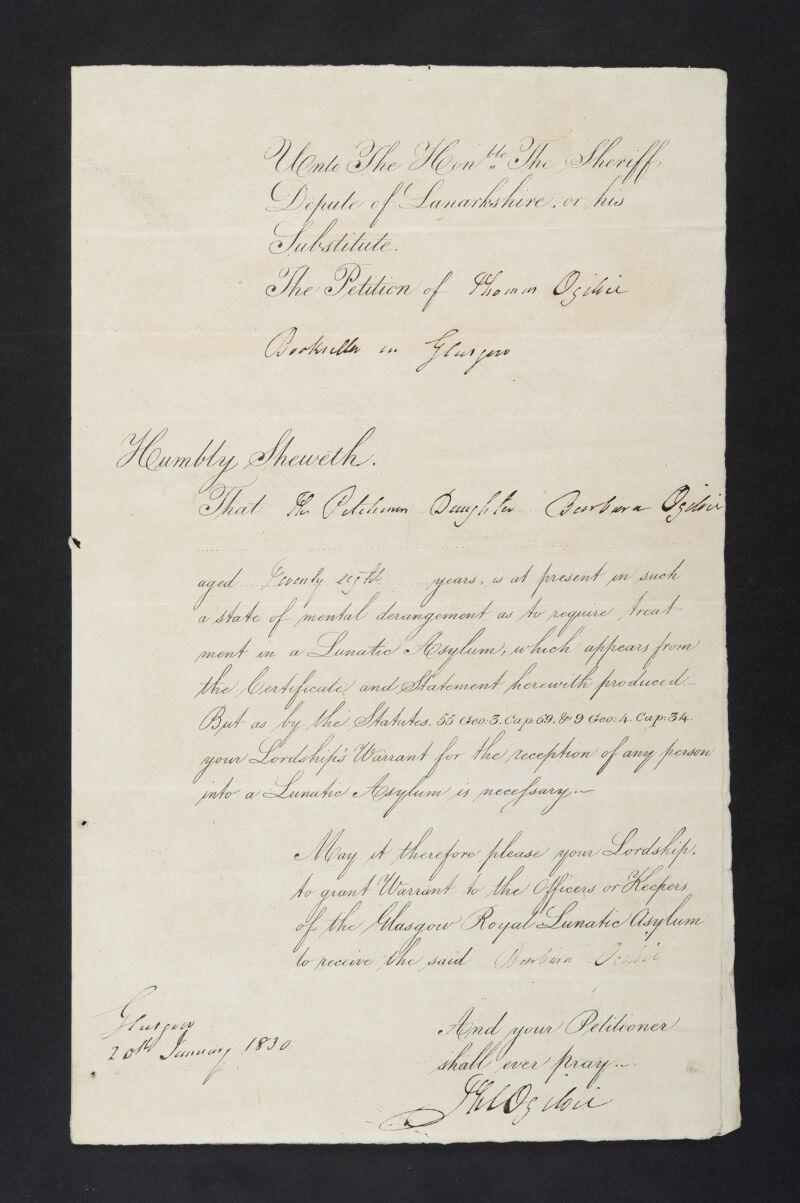 Unto The Hon.ble The Sheriff
Depute of Lanarkshire, or his
Substitute.
The Petition of Thomas Ogilvie
Bookseller in Glasgow
Humbly Sheweth.
That The Petitioners Daughter Barbara Ogilvie
aged Twenty eight years, is at present in such
a state of mental derangement as to require treat-
ment in a Lunatic Asylum, which appears from
the Certificate and Statement herewith produced.–
But as by the Statutes, 55 Geo: 3. Cap: 69. & 9 Geo: 4. Cap: 34.
your Lordship's Warrant for the reception of any person
into a Lunatic Asylum is necessary.–
May it therefore please your Lordship,
to grant Warrant to the Officers or Keepers
of the Glasgow Royal Lunatic Asylum
to receive the said Barbara Ogilvie
And your Petitioner
shall ever pray.–
Glasgow
20th January 1830
Ogilvie